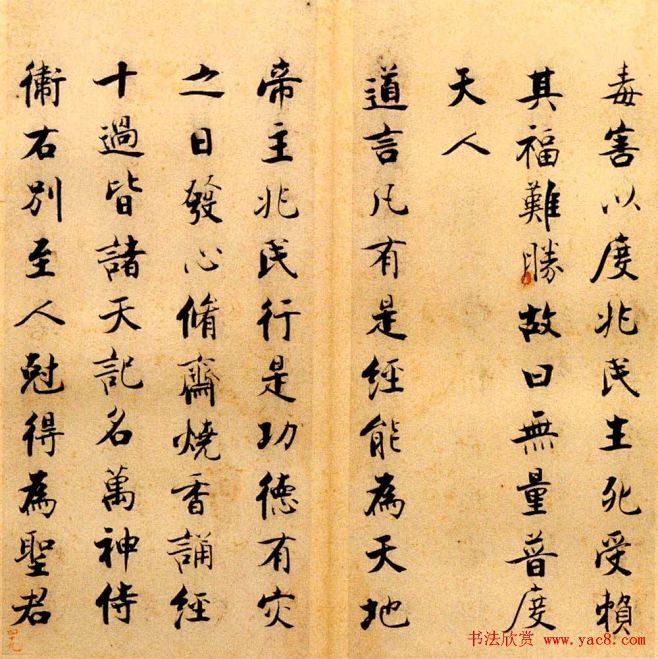 毒害以度兆民生死受賴
其福難勝故曰無量普度
天人
道言凡有是經能為天地
帝主兆民行是功德有灾
之日發心脩齋燒香誦經
十過皆諸天記名萬神侍
衛右別至人尅得為聖君
四十九
书法欣赏 www.yac8.com